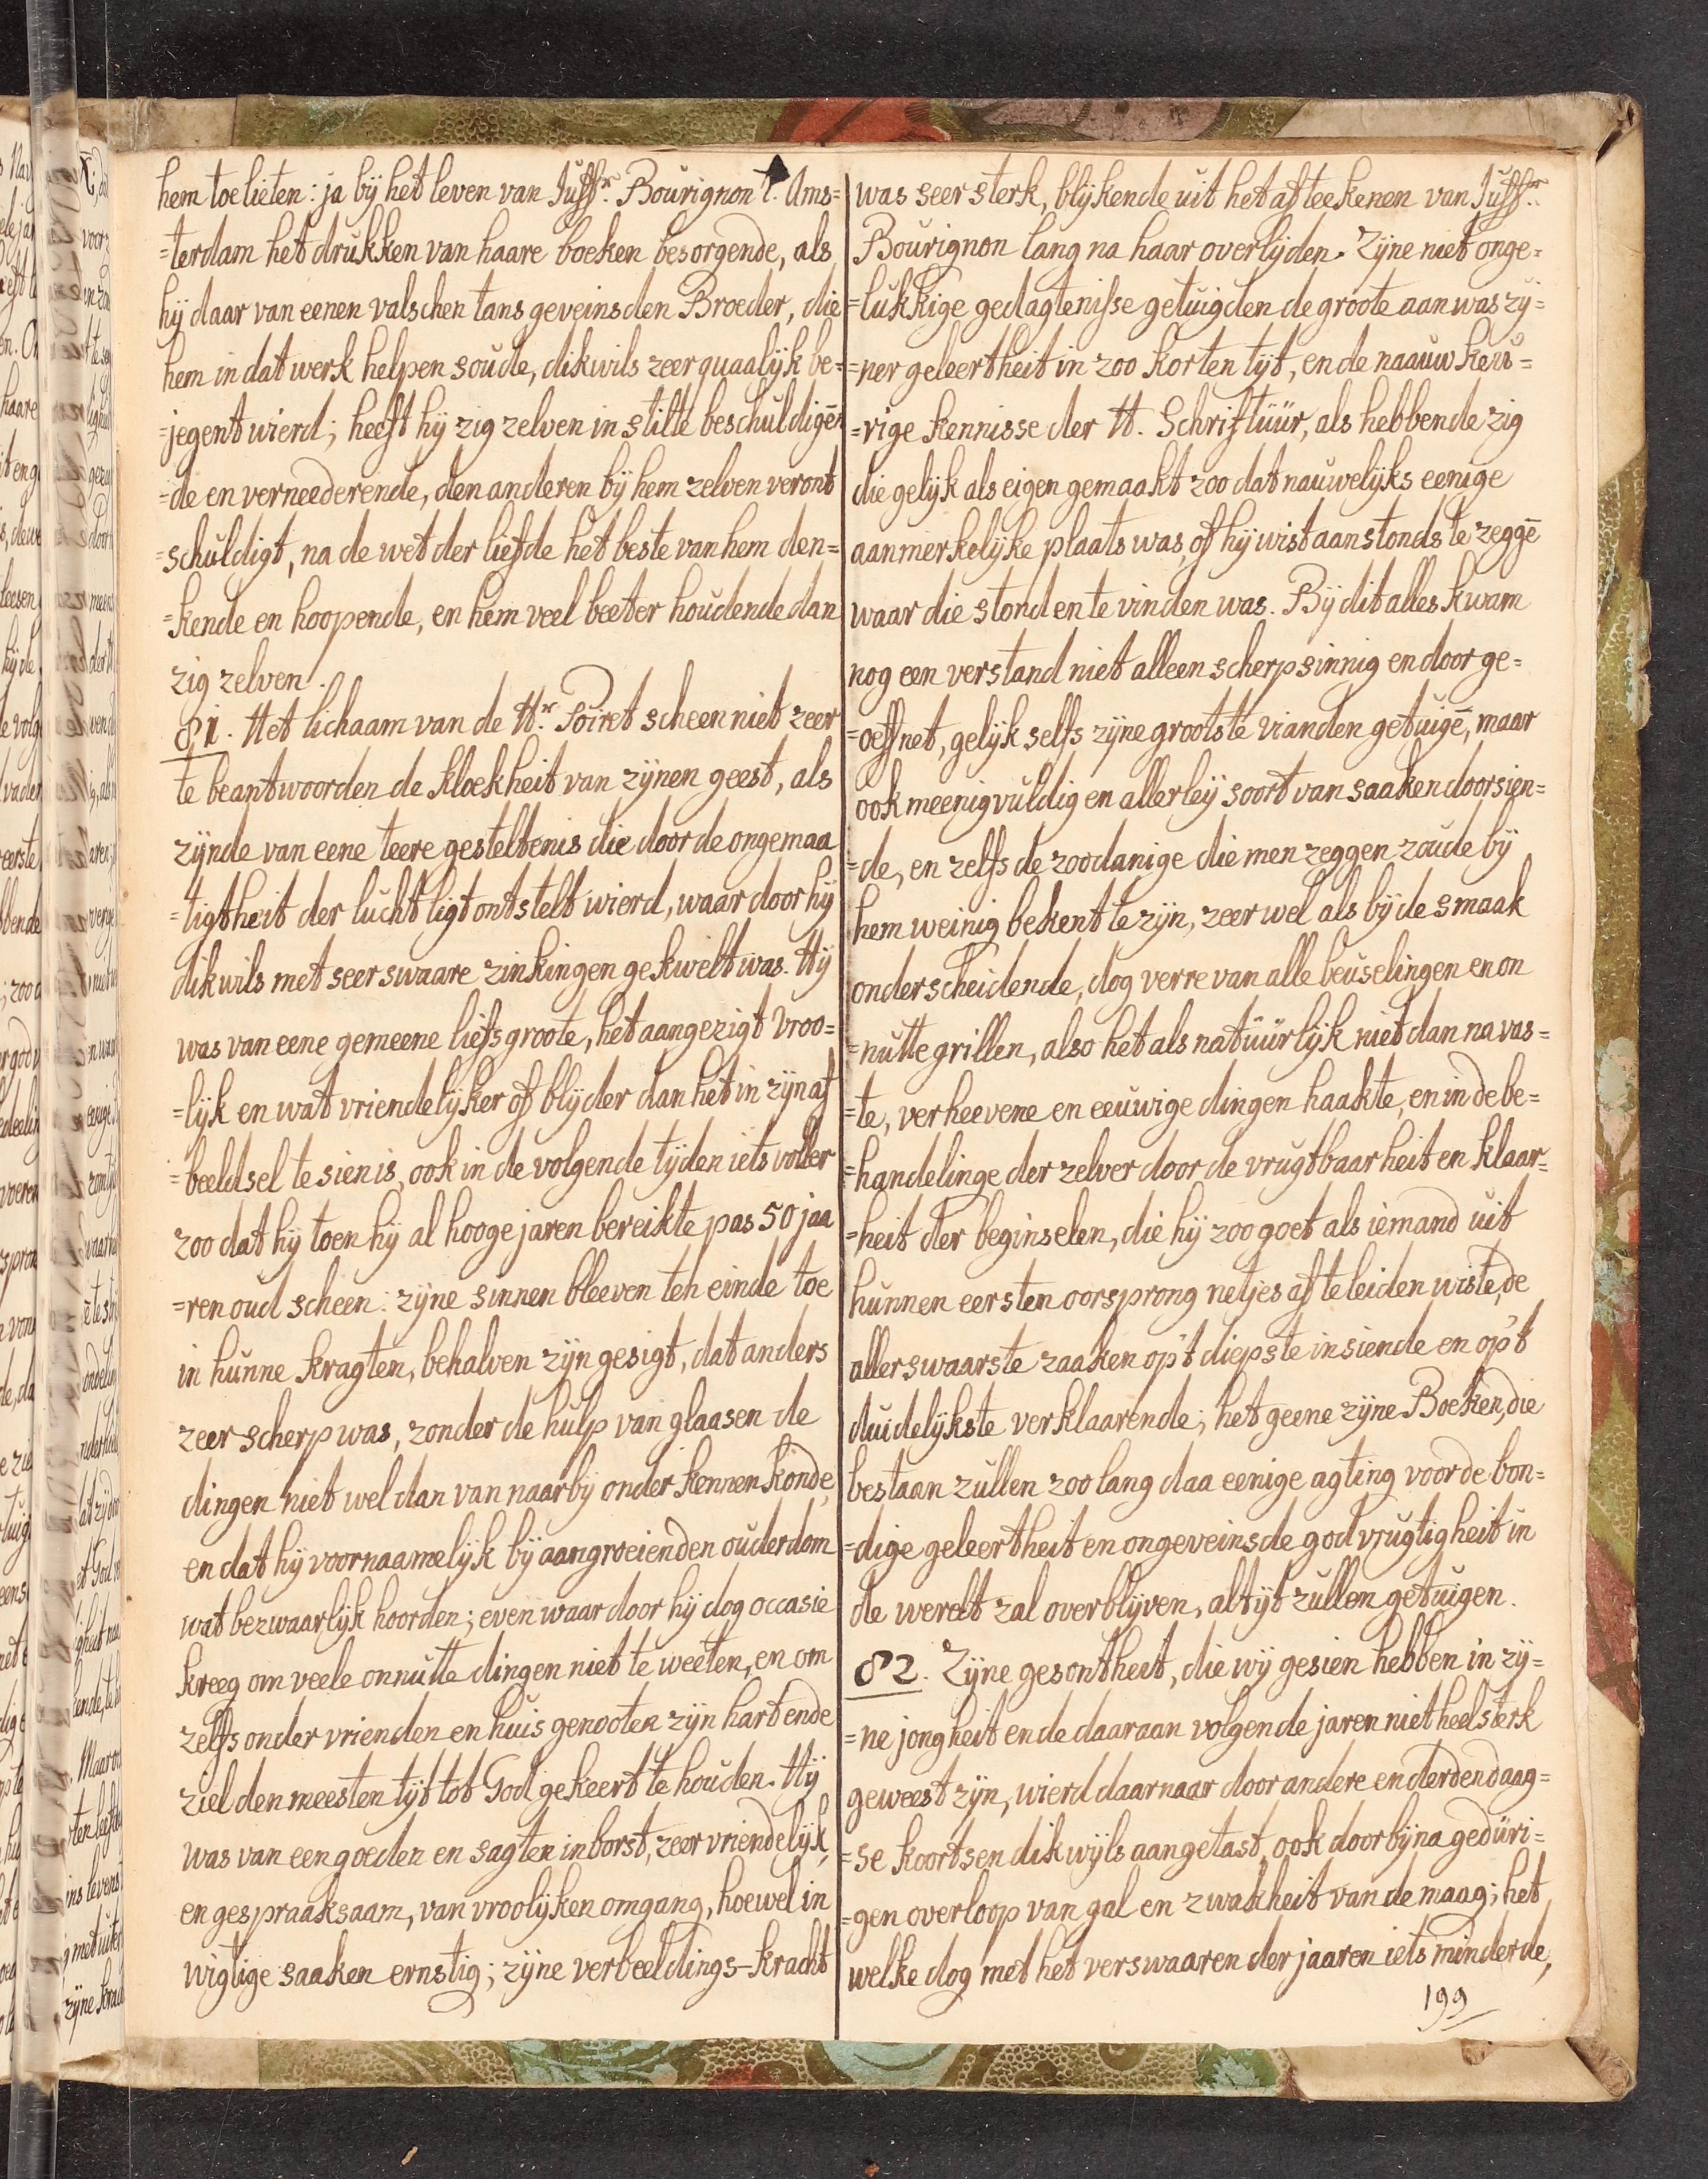 hem toe lieten: ja bÿ het leven van Juffr. Bourignon t. Ams=
=terdam het drukken van haare boeken besorgende, als
hÿ daar van eenen valschen tans geveinsden Broeder, die
hem in dat werk helpen soude, dikwils zeer quaalÿk be=
=jegent wierd; heeft hÿ zig zelven in stilte beschuldigēn
=de en verneederende, den anderen bÿ hem zelven veront
=schuldigt, na de wet der liefde het beste van hem den=
=kende en hoopende, en hem veel beeter houdende dan
zig zelven.
81. Het lichaam van de Hr. Poiret scheen niet zeer
te beantwoorden de kloekheit van zÿnen geest, als
zÿnde van eene teere gesteltenis die door de ongemaa
=tigtheit der lucht ligt ontstelt wierd, waar door hÿ
dikwils met seer swaare zinkingen gekwelt was. Hÿ
was van eene gemeene liefs groote, het aangezigt vroo=
=lÿk en wat vriendelÿker of blÿder dan het in zÿn af
=beeldsel te sien is, ook in de volgende tÿden iets voller
zoo dat hÿ toen hÿ al hooge jaren bereikte pas 50 jaa
=ren oud scheen: zÿne sinnen bleeven ten einde toe
in hunne kragten, behalven zÿn gesigt, dat anders
zeer scherp was, zonder de hulp van glaasen de
dingen niet wel dan van naarbÿ onder kennen konde,
en dat hÿ voornaamelÿk bÿ aangroeienden ouderdom
wat bezwaarlÿk hoorden; even waar door hÿ dog occasie
kreeg om veele onnutte dingen niet te weeten, en om
zelfs onder vrienden en huis genooten zÿn hart ende
ziel den meesten tÿt tot God gekeert te houden. Hÿ
was van een goeden en sagten inborst, zeer vriendelÿk,
en gespraaksaam, van vroolÿken omgang, hoewel in
wigtige saaken ernstig; zÿne verbeeldings-kracht
was seer sterk, blÿkende uit het afteekenen van Juffr.
Bourignon lang na haar overlÿden. Zÿne niet onge=
=lukkige gedagtenisse getuigden de groote aanwas zÿ=
=ner geleertheit in zoo korten tÿt, en de naauw keu=
=rige kennisse der H. Schriftüür, als hebbende zig
die gelÿk als eigen gemaakt zoo dat nauwelÿks eenige
aanmerkelÿke plaats was, of hÿ wist aanstonds te zeggē
waar die stond en te vinden was. Bÿ dit alles kwam
nog een verstand niet alleen scherpsinnig en door ge=
=oeffnet, gelÿk selfs zÿne grootste vianden getuigē, maar
ook meenigvuldig en allerleÿ soort van saaken doorsien=
=de, en zelfs de zoodanige die men zeggen zoude bÿ
hem weinig bekent te zÿn, zeer wel als bÿ de smaak
onderscheidende, dog verre van alle beuselingen en on
=nutte grillen, also het als natüürlÿk niet dan na vas=
=te, verheevene en eeuwige dingen haakte, en in de be=
=handelinge der zelver door de vrugtbaarheit en klaar=
=heit der beginselen, die hÿ zoo goet als iemand uit
hunnen eersten oorsprong netjes af te leiden wiste, de
allerswaarste zaaken op't diepste insiende en op't
duidelÿkste verklaarende; het geene zÿne Boeken, die
bestaan zullen zoo lang daa eenige agting voor de bon=
=dige geleertheit en ongeveinsde godvrugtigheit in
de werelt zal overblÿven, altÿt zullen getuigen.
82. Zÿne gesontheit, die wÿ gesien hebben in zÿ=
=ne jongheit en de daaraan volgende jaren niet heel sterk
geweest zÿn, wierd daarnaar door andere en derden daag=
=se koortsen dikwÿls aangetast, ook door bÿna gedüri=
=gen overloop van gal en zwakheit van de maag; het
welke dog met het verswaaren der jaaren iets minderde,
199